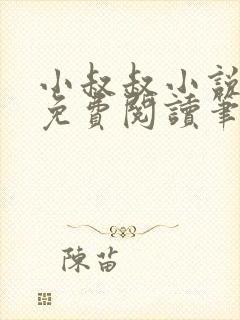 小叔叔小說
免費閱讀筆
陳苗